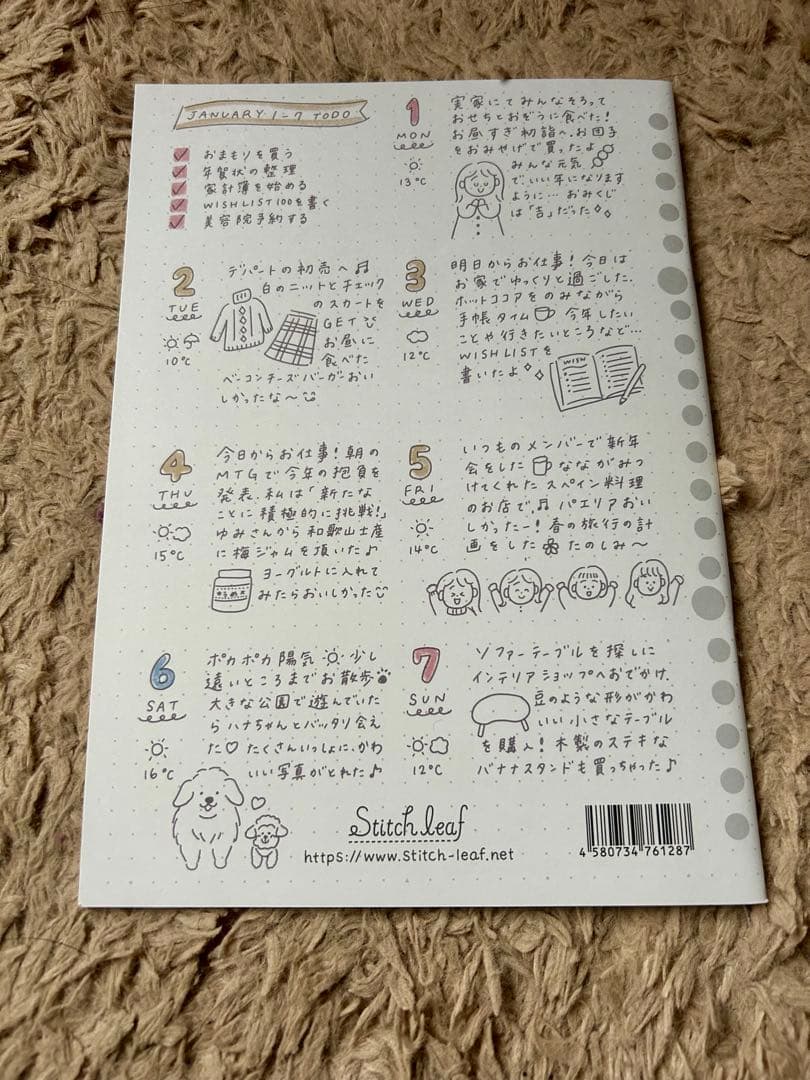 JANUARY 1-7 TODO
おまもりを買う
年賀状の整理
家計簿を始める
WISH LIST 100を書く
美容院予約する
1
MON
13℃
実家にてみんなそろって
おせちとおぞうに食べた!
お昼すぎ初詣へ、お団子
をおみやげで買ったよ
みんな元気
でいい年になります
ように… おみくじ
は「吉」だった
2
TUE
10℃
デパートの初売へ♫
白のニットとチェック
のスカートを
GET
お昼に
食べた
ベーコンチーズバーガーおい
しかったな〜
3
WED
12℃
明日からお仕事!今日は
お家でゆっくりと過ごした.
ホットココアをのみながら
手帳タイム 今年したい
ことや行きたいところなど…
WISH LISTを
書いたよ
WISH
4
THU
15℃
今日からお仕事!朝の
MTGで今年の抱負を
発表.私は「新たな
ことに積極的に挑戦!」
ゆみさんから和歌山土産
に梅ジャムを頂いた♪
ヨーグルトに入れて
みたらおいしかった
うめ
5
FRI
14℃
いつものメンバーで新年
会をした なながみつ
けてくれたスペイン料理
のお店で♫ パエリアおい
しかったー!春の旅行の計
画をした たのしみ〜
6
SAT
16℃
ポカポカ陽気 少し
遠いところまでお散歩
大きな公園で遊んでいた
らハナちゃんとバッタリ会え
た♡ たくさんいっしょに、かわ
いい写真がとれた♪
7
SUN
12℃
ソファーテーブルを探しに
インテリアショップへおでかけ.
豆のような形がかわ
いい小さなテーブル
を購入!木製のステキな
バナナスタンドも買っちゃった♪
Stitch leaf
https://www.stitch-leaf.net
4 580734 761287